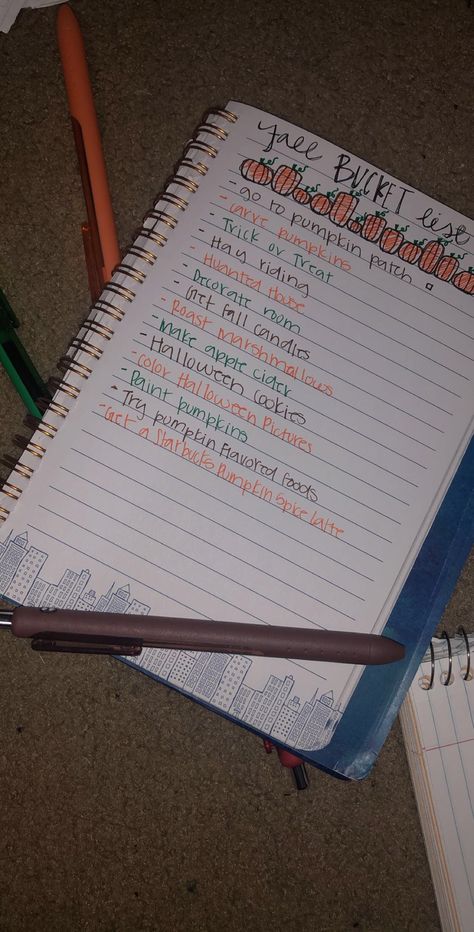 Fall BUCKET list
- go to pumpkin patch
- carve pumpkins
- Trick or Treat
- Hay riding
- Huanted House
- Decorate room
- Get fall candles
- Roast marshmallows
- Make apple cider
- Halloween cookies
- Color Halloween Pictures
- Paint pumpkins
- Try pumpkin flavored foods
- Get a Starbucks Pumpkin Spice latte